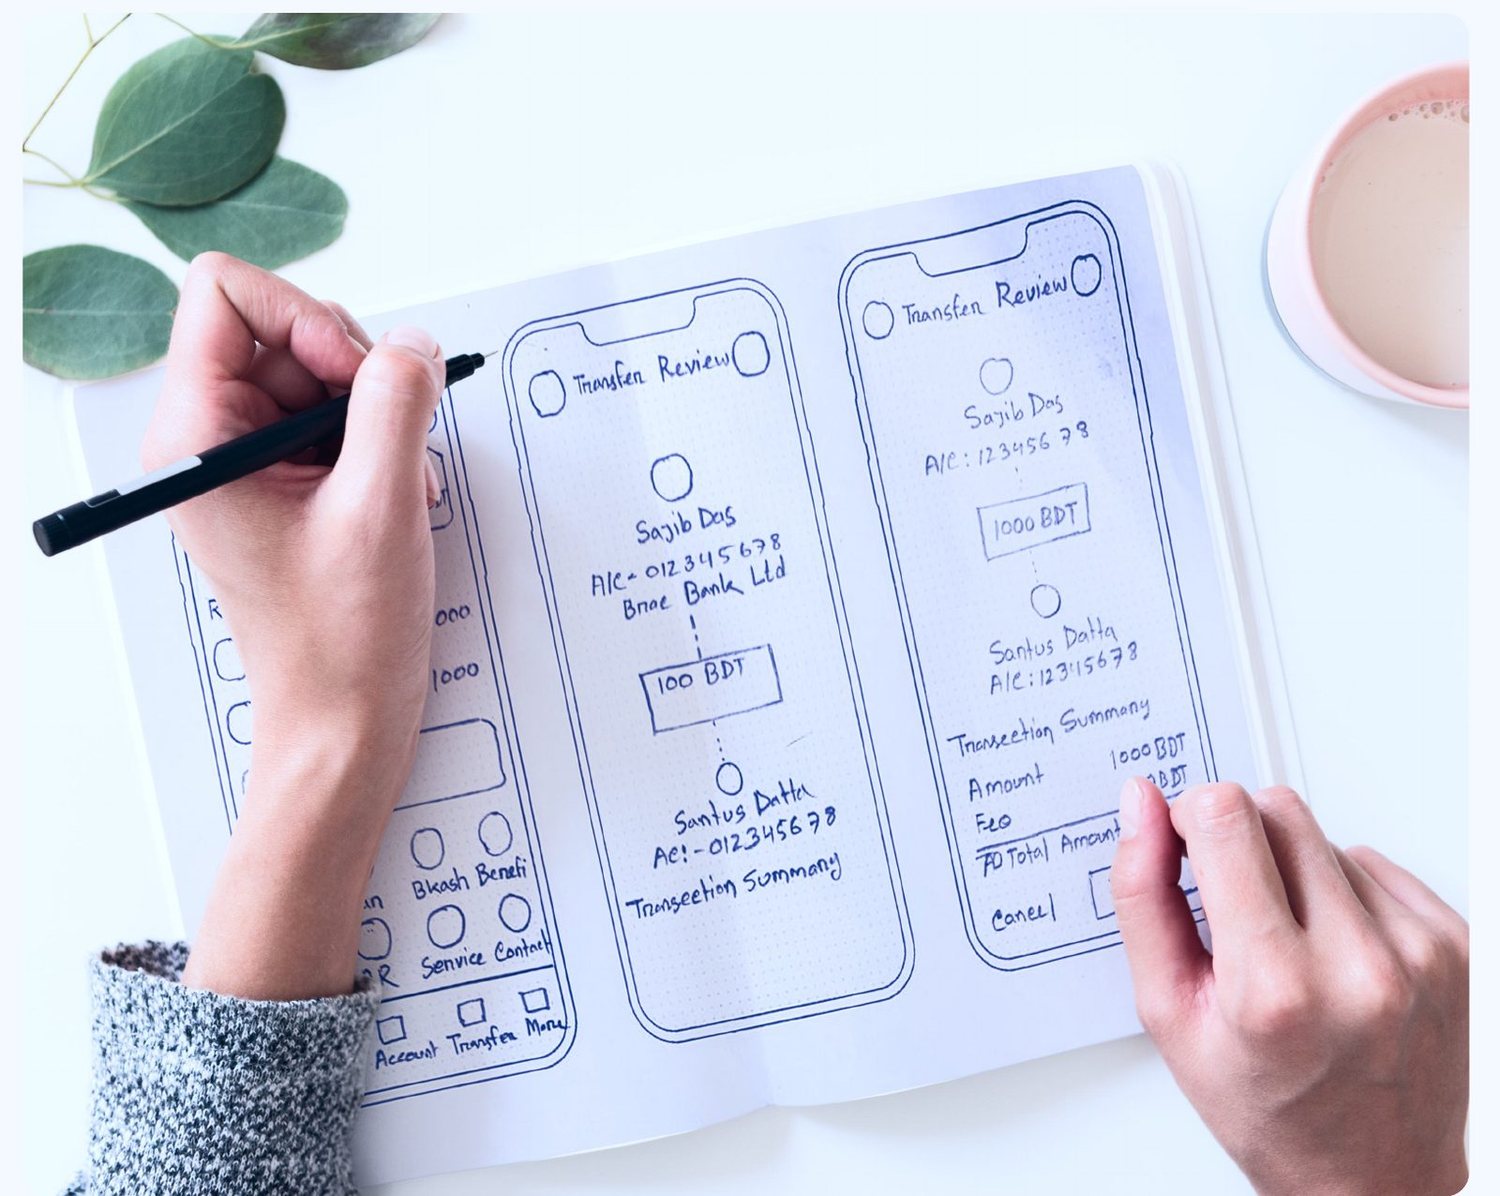 000
1000
Bkash Benefi
Service Contact
Account Transfer More
Transfer Review
Sajib Das
A/C- 012345678
Brac Bank Ltd
100 BDT
Santus Datta
AC:-012345678
Transection Summary
Transfer Review
Sajib Das
A/C: 12345678
1000 BDT
Santus Datta
A/C: 12345678
Transection Summary
Amount 1000 BDT
Fee BDT
Total Amount
Cancel